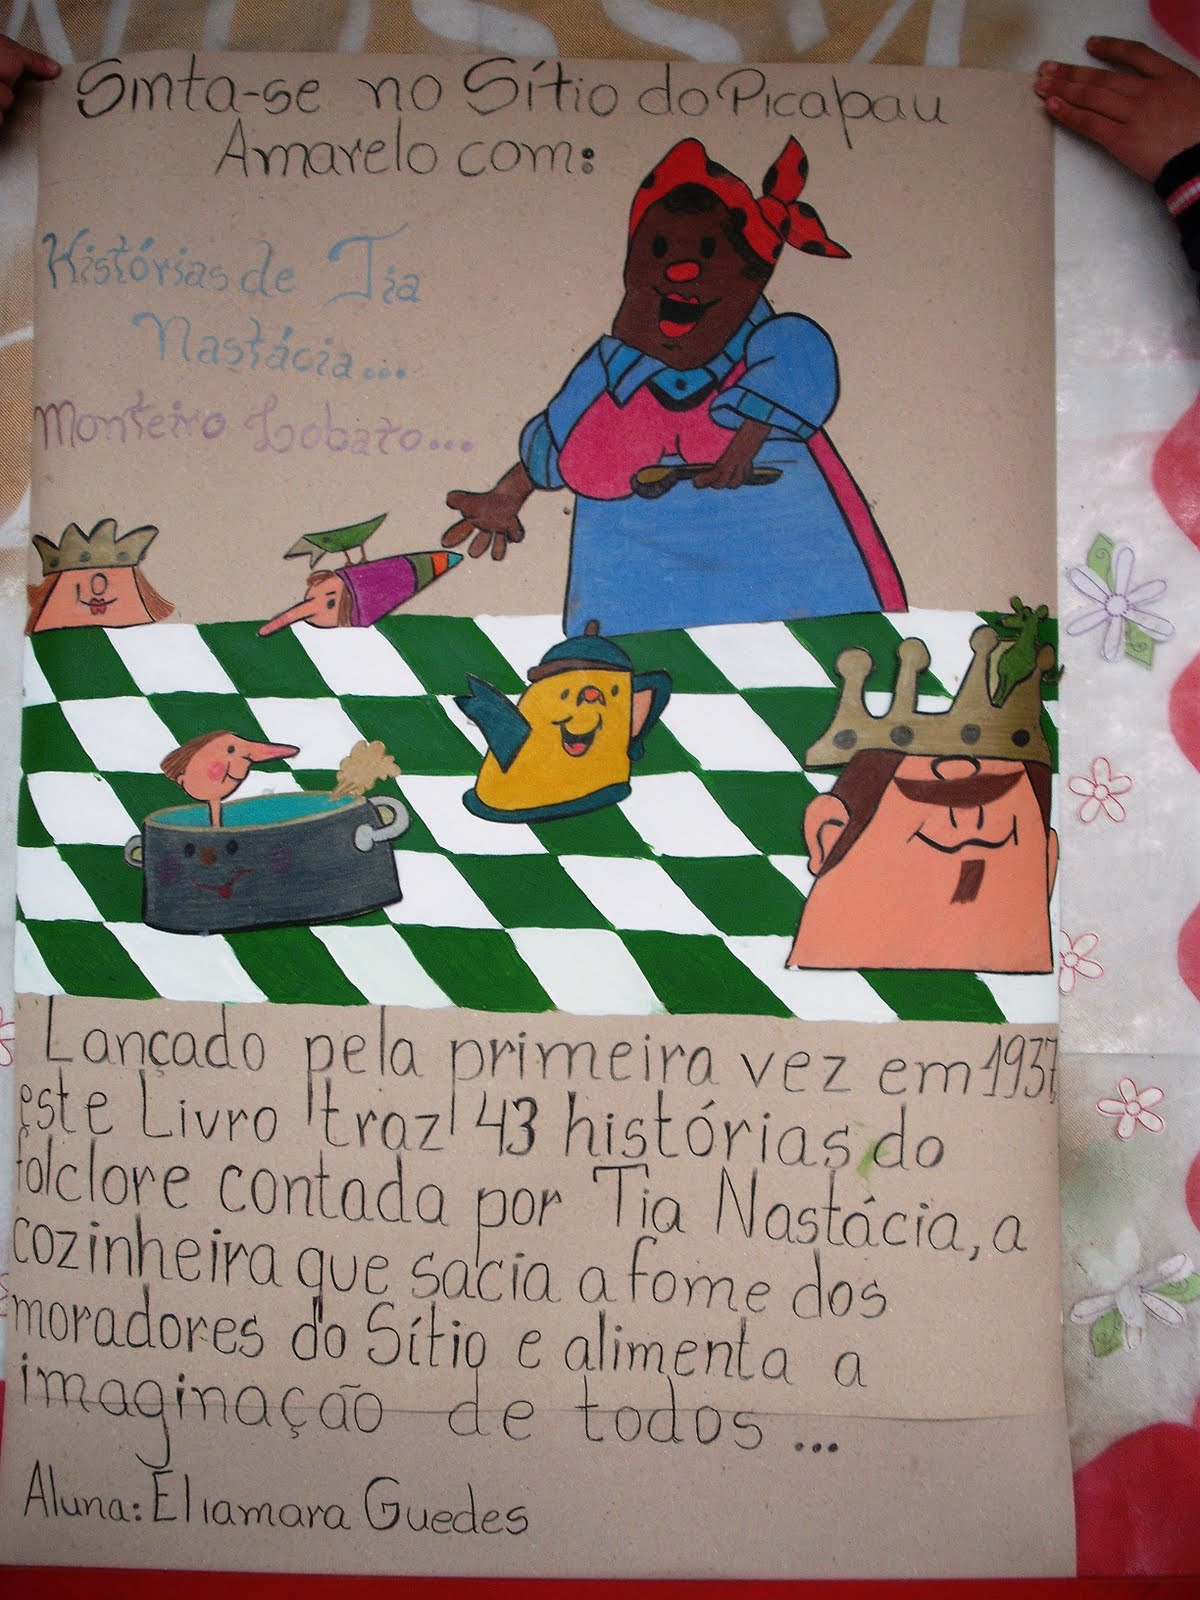 Sinta-se no Sítio do Picapau
Amarelo com:
Histórias de Tia
Nastácia...
Monteiro Lobato...
Lançado pela primeira vez em 1937
este Livro traz 43 histórias do
folclore contada por Tia Nastácia, a
cozinheira que sacia a fome dos
moradores do Sítio e alimenta a
imaginação de todos...
Aluna: Eliamara Guedes